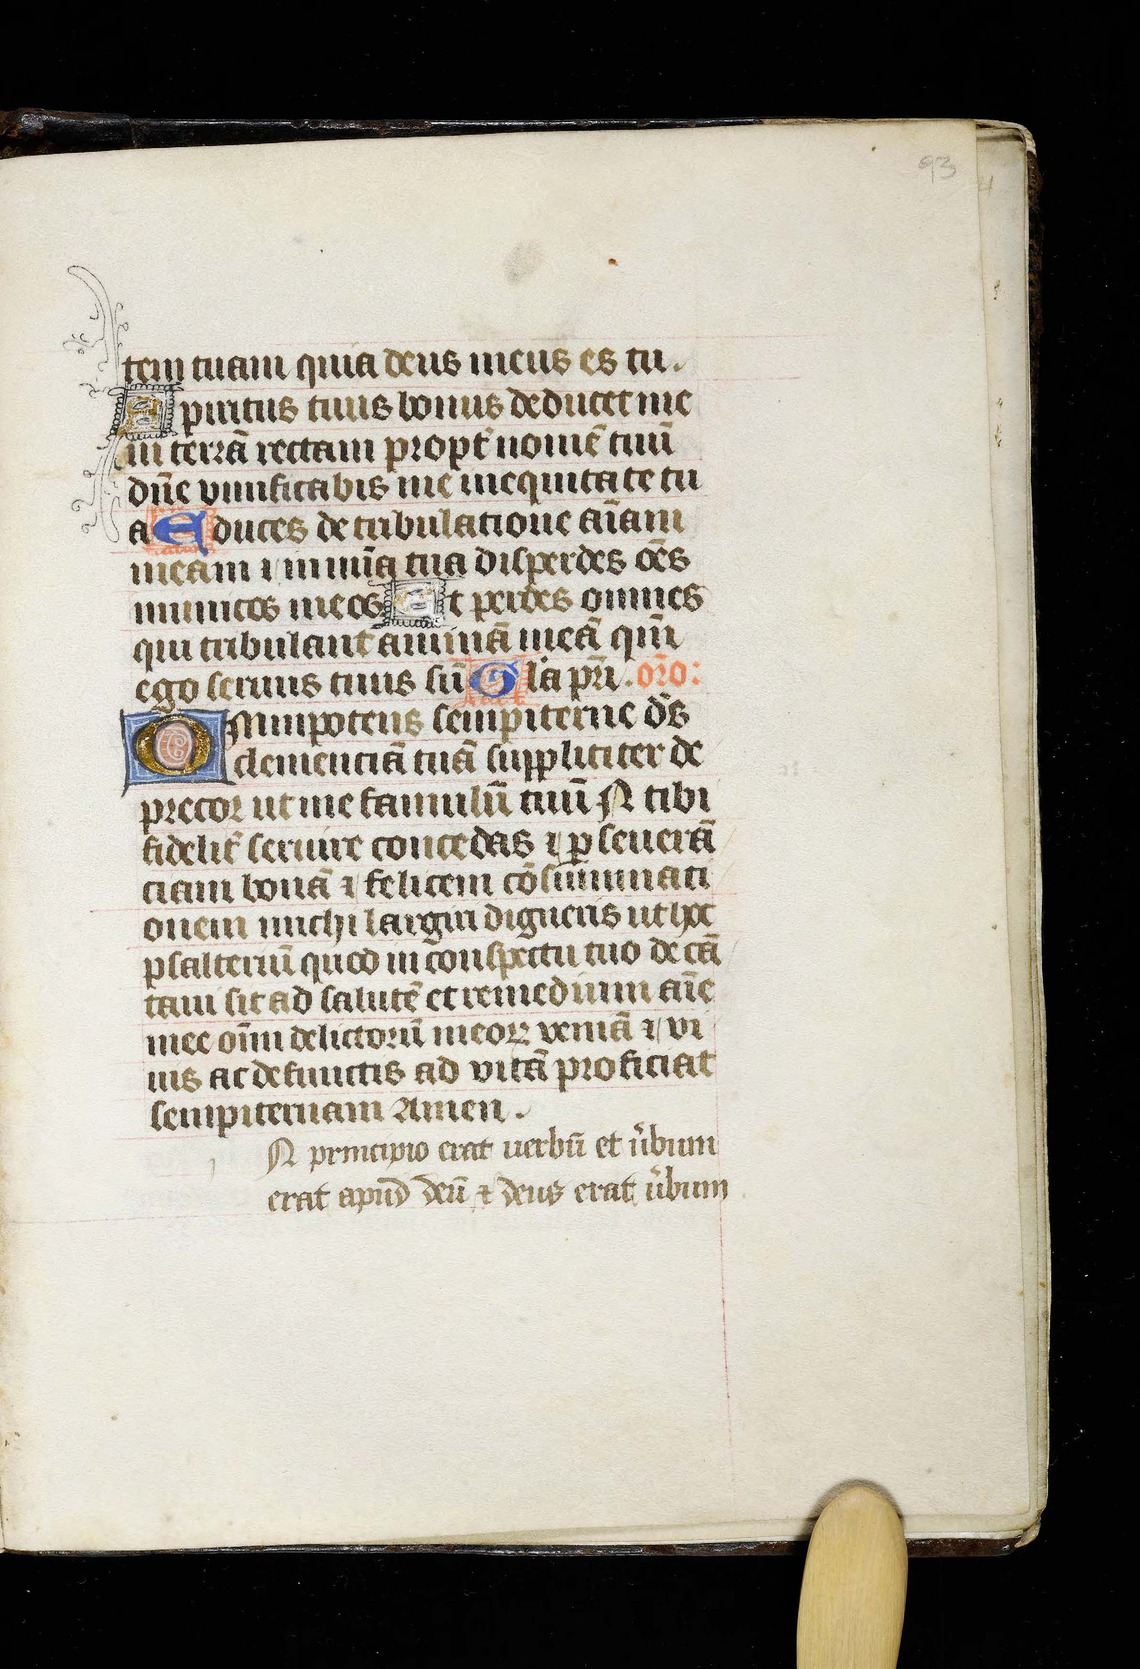 93
tem tuam quia deus meus es tu.
Spiritus tuus bonus deducet me
in terrā rectam propt̄ nomē tuū
dn̄e viuificabis me inequitate tu
a Educes de tribulatione aīam
meam ⁊ in mīa tua disperdes oēs
inimicos meos Et perdes omnes
qui tribulant animā meā qm̄
ego seruus tuus sū Gl'a pr̄i. or̄o:
Omnipotens sempiterne ds̄
clementiā tuā suppliciter de
precor ut me famulū tuū N tibi
fidelit̄ seruire concedas ⁊ ꝑseuerā
ciam bonā ⁊ felicem cōsummati
onem michi largiri digneris ut hoc
psalteriū quod in conspectu tuo decā
taui sit ad salutē et remedium aīe
mee oīm delictorū meoꝝ veniā ⁊ vi
uis ac defunctis ad vitā proficiat
sempiternam Amen.
N principio erat uerbū et ūbum
erat apud deū ⁊ deus erat ūbum